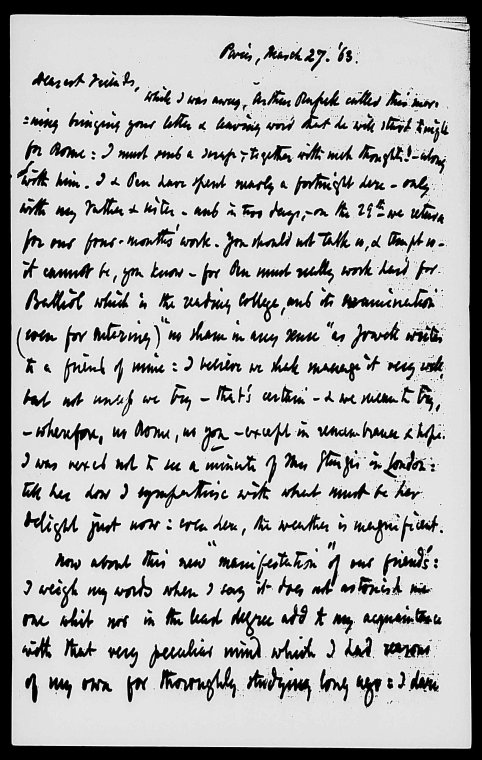 Paris, March 27. '63.
Dearest Friends,
while I was away, Arthur Russell called this mor-
=ning bringing your letter & leaving word that he will start tonight
for Rome: I must send a scrap, together with such thoughts! - along
with him. I & Pen have spent nearly a fortnight here - only
with my Father & sister - and in two days, - on the 29th we return
for our four-months' work. You should not talk so, & tempt us -
it cannot be, you know - for Pen must really work hard for
Balliol which is the reading College, and its examination
(even for entering) "no sham in any sense" as Jowett writes
to a friend of mine: I believe we shall manage it very well,
but not unless we try - that's certain - & we mean to try,
- wherefore, no Rome, no you - except in remembrance & hope.
I was vexed not to see a minute of Mrs Sturgis in London:
tell her how I sympathise with what must be her
delight just now: even here, the weather is magnificent.
Now about this new "manifestation" of our friend's:
I weigh my words when I say it does not astonish me
one whit nor in the least degree add to my acquaintance
with that very peculiar mind which I had reasons
of my own for thoroughly studying long ago: I dare